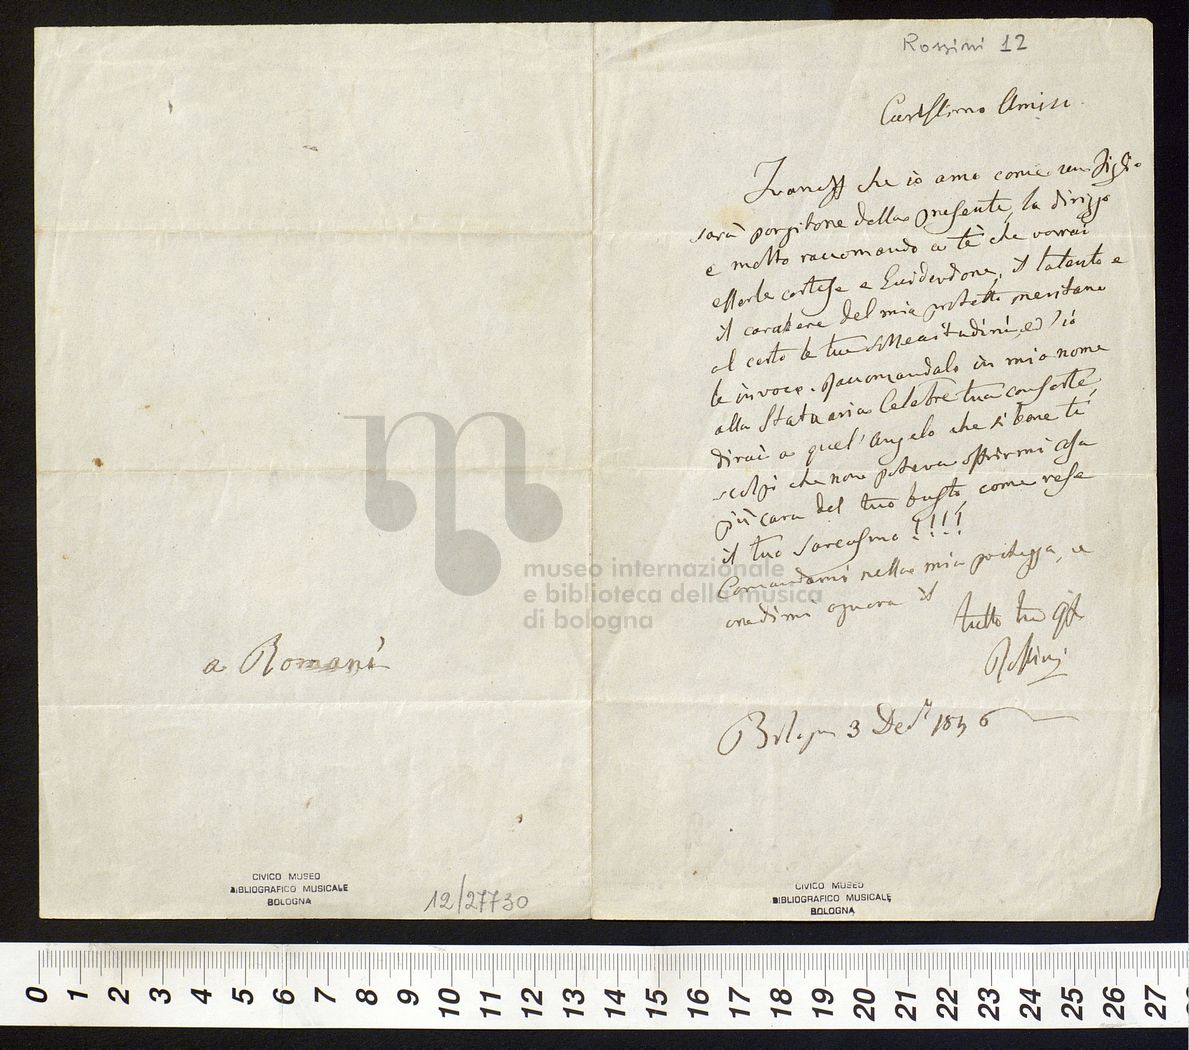 Rossini 12
Carissimo Amico.
Ivanoff che io amo come un figlio
sarà porgitore della presente, la dirizzo
e molto raccomando a tè che vorrai
esserle cortese e il talento e
il carattere del mio protetto meritano
al certo le tue sollecitudini, ed io
le invoco. Raccomandalo in mio nome
alla Statuaria Celebre tua consorte,
dirai a quel'Angelo che sì bene ti
scolpì che non poteva offrirmi cosa
più cara del tuo busto, come rese
il tuo sarcasmo!!!!
Comandami nella mia pochezza, e
credimi ognora il
tutto tuo
Rossini
Bologna 3 1846
a Romani
museo internazionale
e biblioteca della musica
di bologna
CIVICO MUSEO
BIBLIOGRAFICO MUSICALE
BOLOGNA
12/27730
CIVICO MUSEO
BIBLIOGRAFICO MUSICALE
BOLOGNA
0 1 2 3 4 5 6 7 8 9 10 11 12 13 14 15 16 17 18 19 20 21 22 23 24 25 26 27